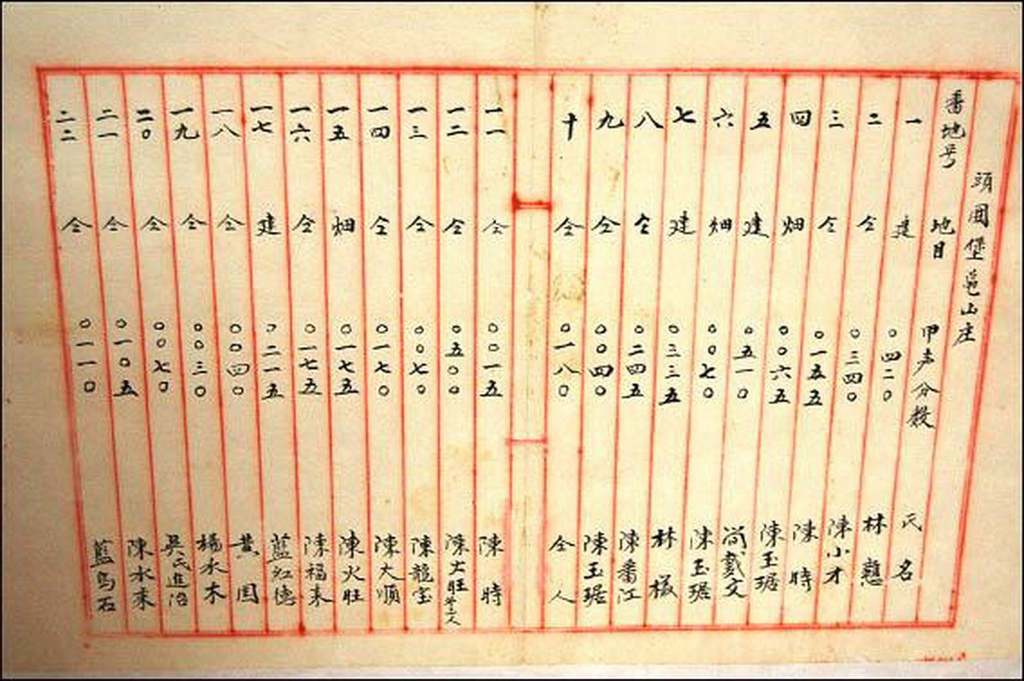 頭圍堡邑山庄
番地号 地目 甲声分数 氏名
一 建 〇四二〇 林
二 仝 〇三四〇 陳小才
三 仝 〇一五五 陳時
四 畑 〇〇六五 陳玉琚
五 建 〇五一〇 戴文
六 畑 〇〇七〇 陳玉琚
七 建 〇三三五 林
八 仝 〇二四五 陳番江
九 仝 〇〇四〇 陳玉琚
十 仝 〇一八〇 仝人
一一 仝 〇〇一五 陳時
一二 仝 〇五〇〇 陳火旺外二人
一三 仝 〇〇七〇 陳龍宝
一四 仝 〇一七〇 陳大順
一五 畑 〇一七五 陳火旺
一六 仝 〇一七五 陳福来
一七 建 〇二一五 藍红德
一八 仝 〇〇四〇 黄国
一九 仝 〇〇三〇 楊水木
二〇 仝 〇〇七〇 吳氏進治
二一 仝 〇一〇五 陳水来
二二 仝 〇一一〇 藍烏石